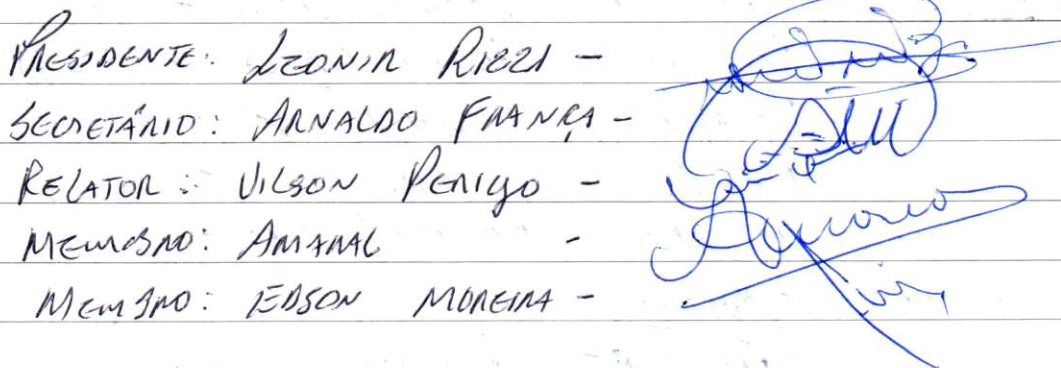 PRESIDENTE: LEONIR RIZZI -
SECRETÁRIO: ARNALDO FRANÇA -
RELATOR: VILSON PERIGO -
MEMBRO: AMARAL -
MEMBRO: EDSON MOREIRA -